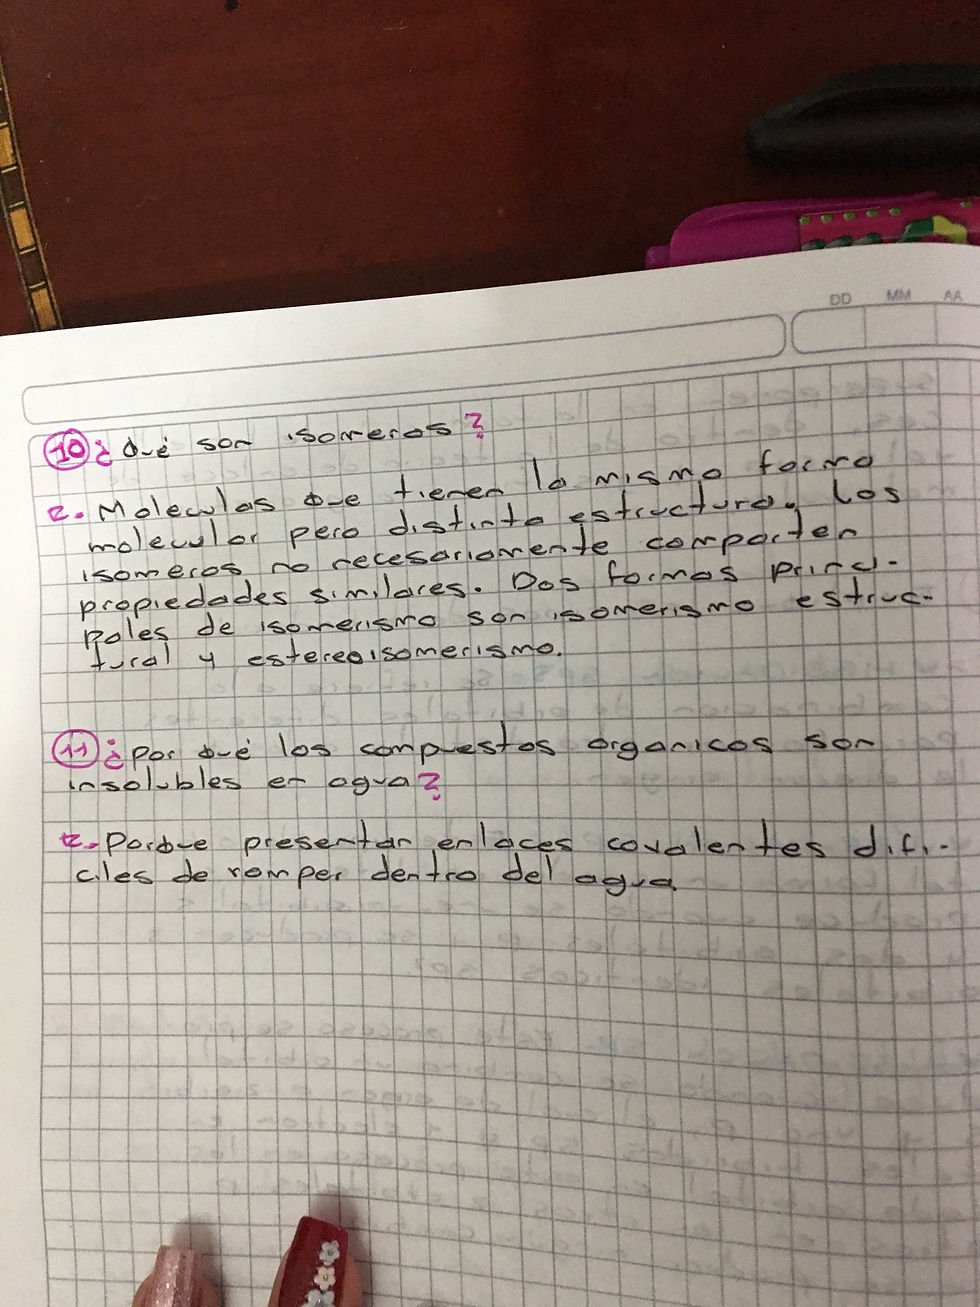 DD MM AA
10 ¿Qué son isomeros?
R. Moleculas que tienen la misma forma
molecular pero distinta estructura. Los
isomeros no necesariamente comparten
propiedades similares. Dos formas princi-
pales de isomerismo son isomerismo estruc-
tural y estereoisomerismo.
11 ¿Por qué los compuestos organicos son
insolubles en agua?
R. Porque presentan enlaces covalentes difi-
ciles de romper dentro del agua